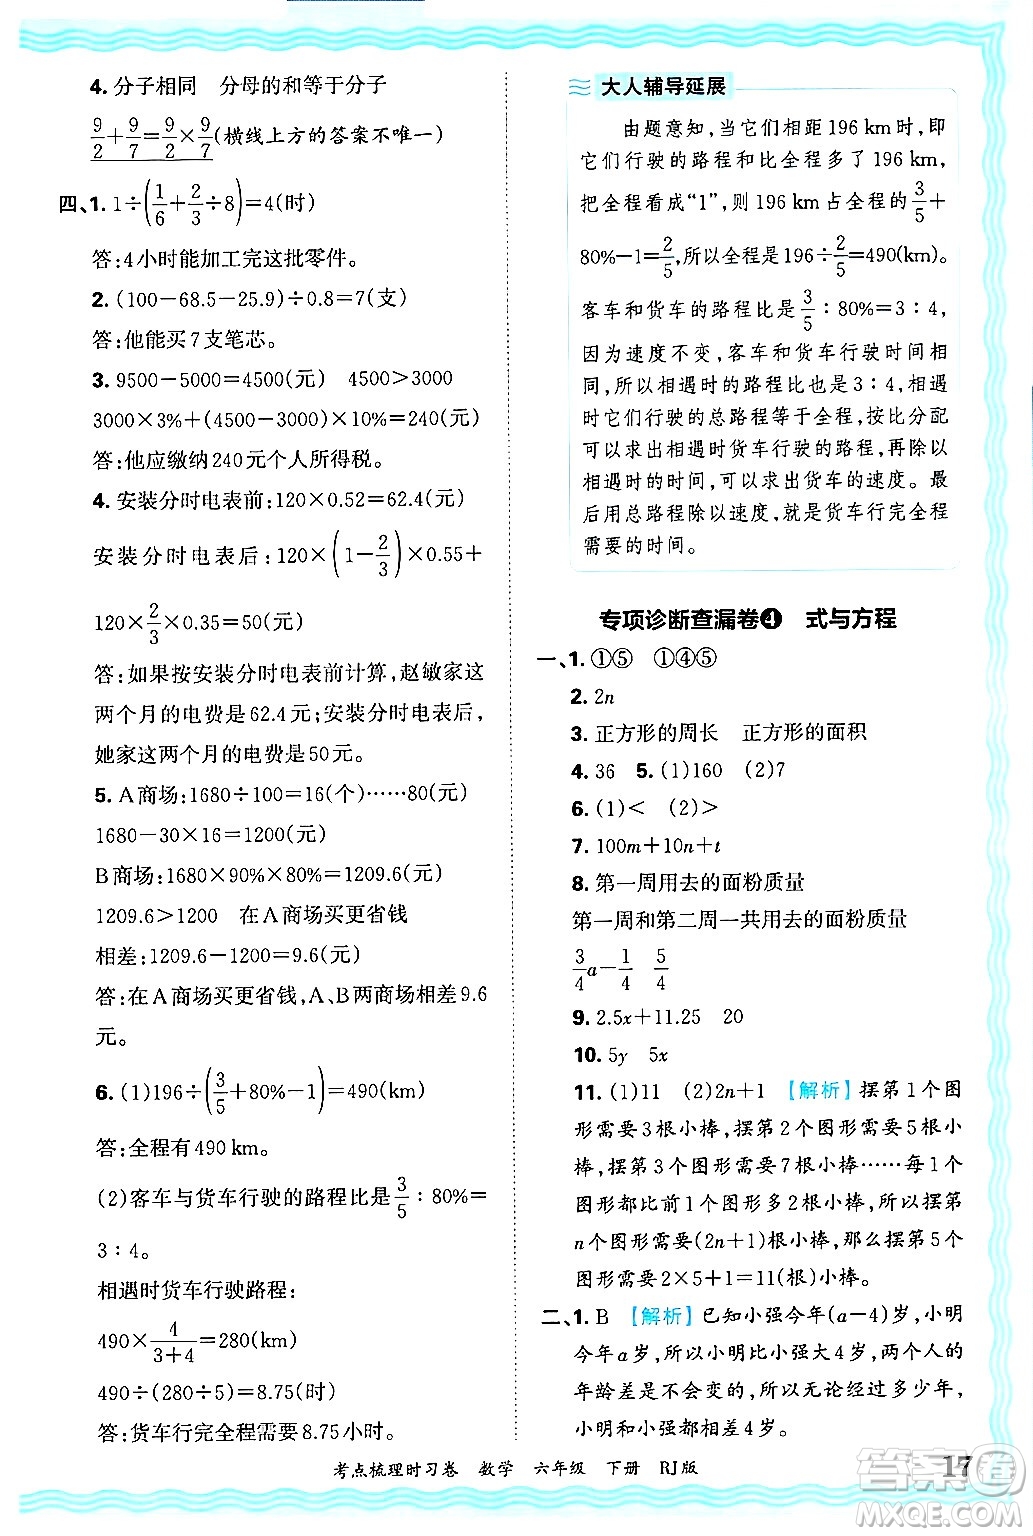 4. 分子相同　分母的和等于分子
9/2+9/7=9/2×9/7(横线上方的答案不唯一)
四、1. 1÷(1/6+2/3÷8)=4(时)
答:4小时能加工完这批零件。
2. (100-68.5-25.9)÷0.8=7(支)
答:他能买7支笔芯。
3. 9500-5000=4500(元)　4500>3000
3000×3%+(4500-3000)×10%=240(元)
答:他应缴纳240元个人所得税。
4. 安装分时电表前:120×0.52=62.4(元)
安装分时电表后:120×(1-2/3)×0.55+
120×2/3×0.35=50(元)
答:如果按安装分时电表前计算,赵敏家这
两个月的电费是62.4元;安装分时电表后,
她家这两个月的电费是50元。
5. A商场:1680÷100=16(个)……80(元)
1680-30×16=1200(元)
B商场:1680×90%×80%=1209.6(元)
1209.6>1200　在A商场买更省钱
相差:1209.6-1200=9.6(元)
答:在A商场买更省钱,A、B两商场相差9.6
元。
6. (1)196÷(3/5+80%-1)=490(km)
答:全程有490 km。
(2)客车与货车行驶的路程比是3/5∶80%=
3∶4。
相遇时货车行驶路程:
490×4/(3+4)=280(km)
490÷(280÷5)=8.75(时)
答:货车行完全程需要8.75小时。
大人辅导延展
由题意知,当它们相距196 km时,即
它们行驶的路程和比全程多了196 km,
把全程看成“1”,则196 km占全程的3/5+
80%-1=2/5,所以全程是196÷2/5=490(km)。
客车和货车的路程比是3/5∶80%=3∶4,
因为速度不变,客车和货车行驶时间相
同,所以相遇时的路程比也是3∶4,相遇
时它们行驶的总路程等于全程,按比分配
可以求出相遇时货车行驶的路程,再除以
相遇时的时间,可以求出货车的速度。最
后用总路程除以速度,就是货车行完全程
需要的时间。
专项诊断查漏卷4　式与方程
一、1. ①⑤　①④⑤
2. 2n
3. 正方形的周长　正方形的面积
4. 36　5. (1)160　(2)7
6. (1)<　(2)>
7. 100m+10n+t
8. 第一周用去的面粉质量
第一周和第二周一共用去的面粉质量
3/4a-1/4　5/4
9. 2.5x+11.25　20
10. 5y　5x
11. (1)11　(2)2n+1　【解析】摆第1个图
形需要3根小棒,摆第2个图形需要5根小
棒,摆第3个图形需要7根小棒……每1个
图形都比前1个图形多2根小棒,所以摆第
n个图形需要(2n+1)根小棒,那么摆第5个
图形需要2×5+1=11(根)小棒。
二、1. B　【解析】已知小强今年(a-4)岁,小明
今年a岁,所以小明比小强大4岁,两个人的
年龄差是不会变的,所以无论经过多少年,
小明和小强都相差4岁。
考点梳理时习卷　数学　六年级　下册　RJ版
17
答案圈
MXQE.COM